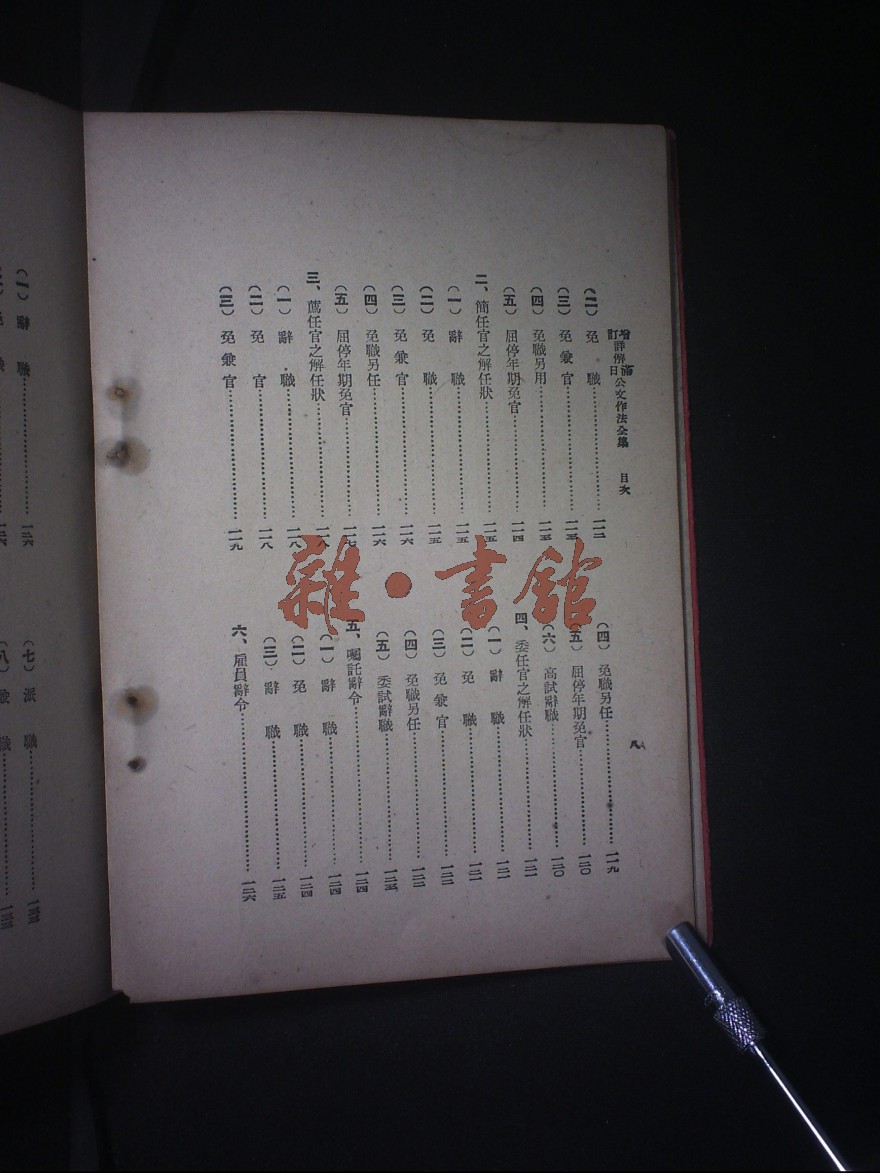 增訂詳解滿日公文作法全集 目次
(二)免職 一一二
(三)免兼官 一一三
(四)免職另用 一一三
(五)屈停年期免官 一一四
二、簡任官之解任狀 一一五
(一)辭職 一一五
(二)免職 一一五
(三)免兼官 一一六
(四)免職另任 一一六
(五)屈停年期免官 一一七
三、薦任官之解任狀 一一八
(一)辭職 一一八
(二)免官 一一八
(三)免兼官 一一九
(四)免職另任 一一九
(五)屈停年期免官 一二〇
(六)高試辭職 一二〇
四、委任官之解任狀 一二一
(一)辭職 一二一
(二)免職 一二一
(三)免兼官 一二二
(四)免職另任 一二二
(五)委試辭職 一二三
五、囑託辭令 一二四
(一)辭職 一二四
(二)免職 一二四
(三)辭職 一二五
六、雇員辭令 一二六
八
(一)辭職 一二六
(七)派職 一三三
雜·書館